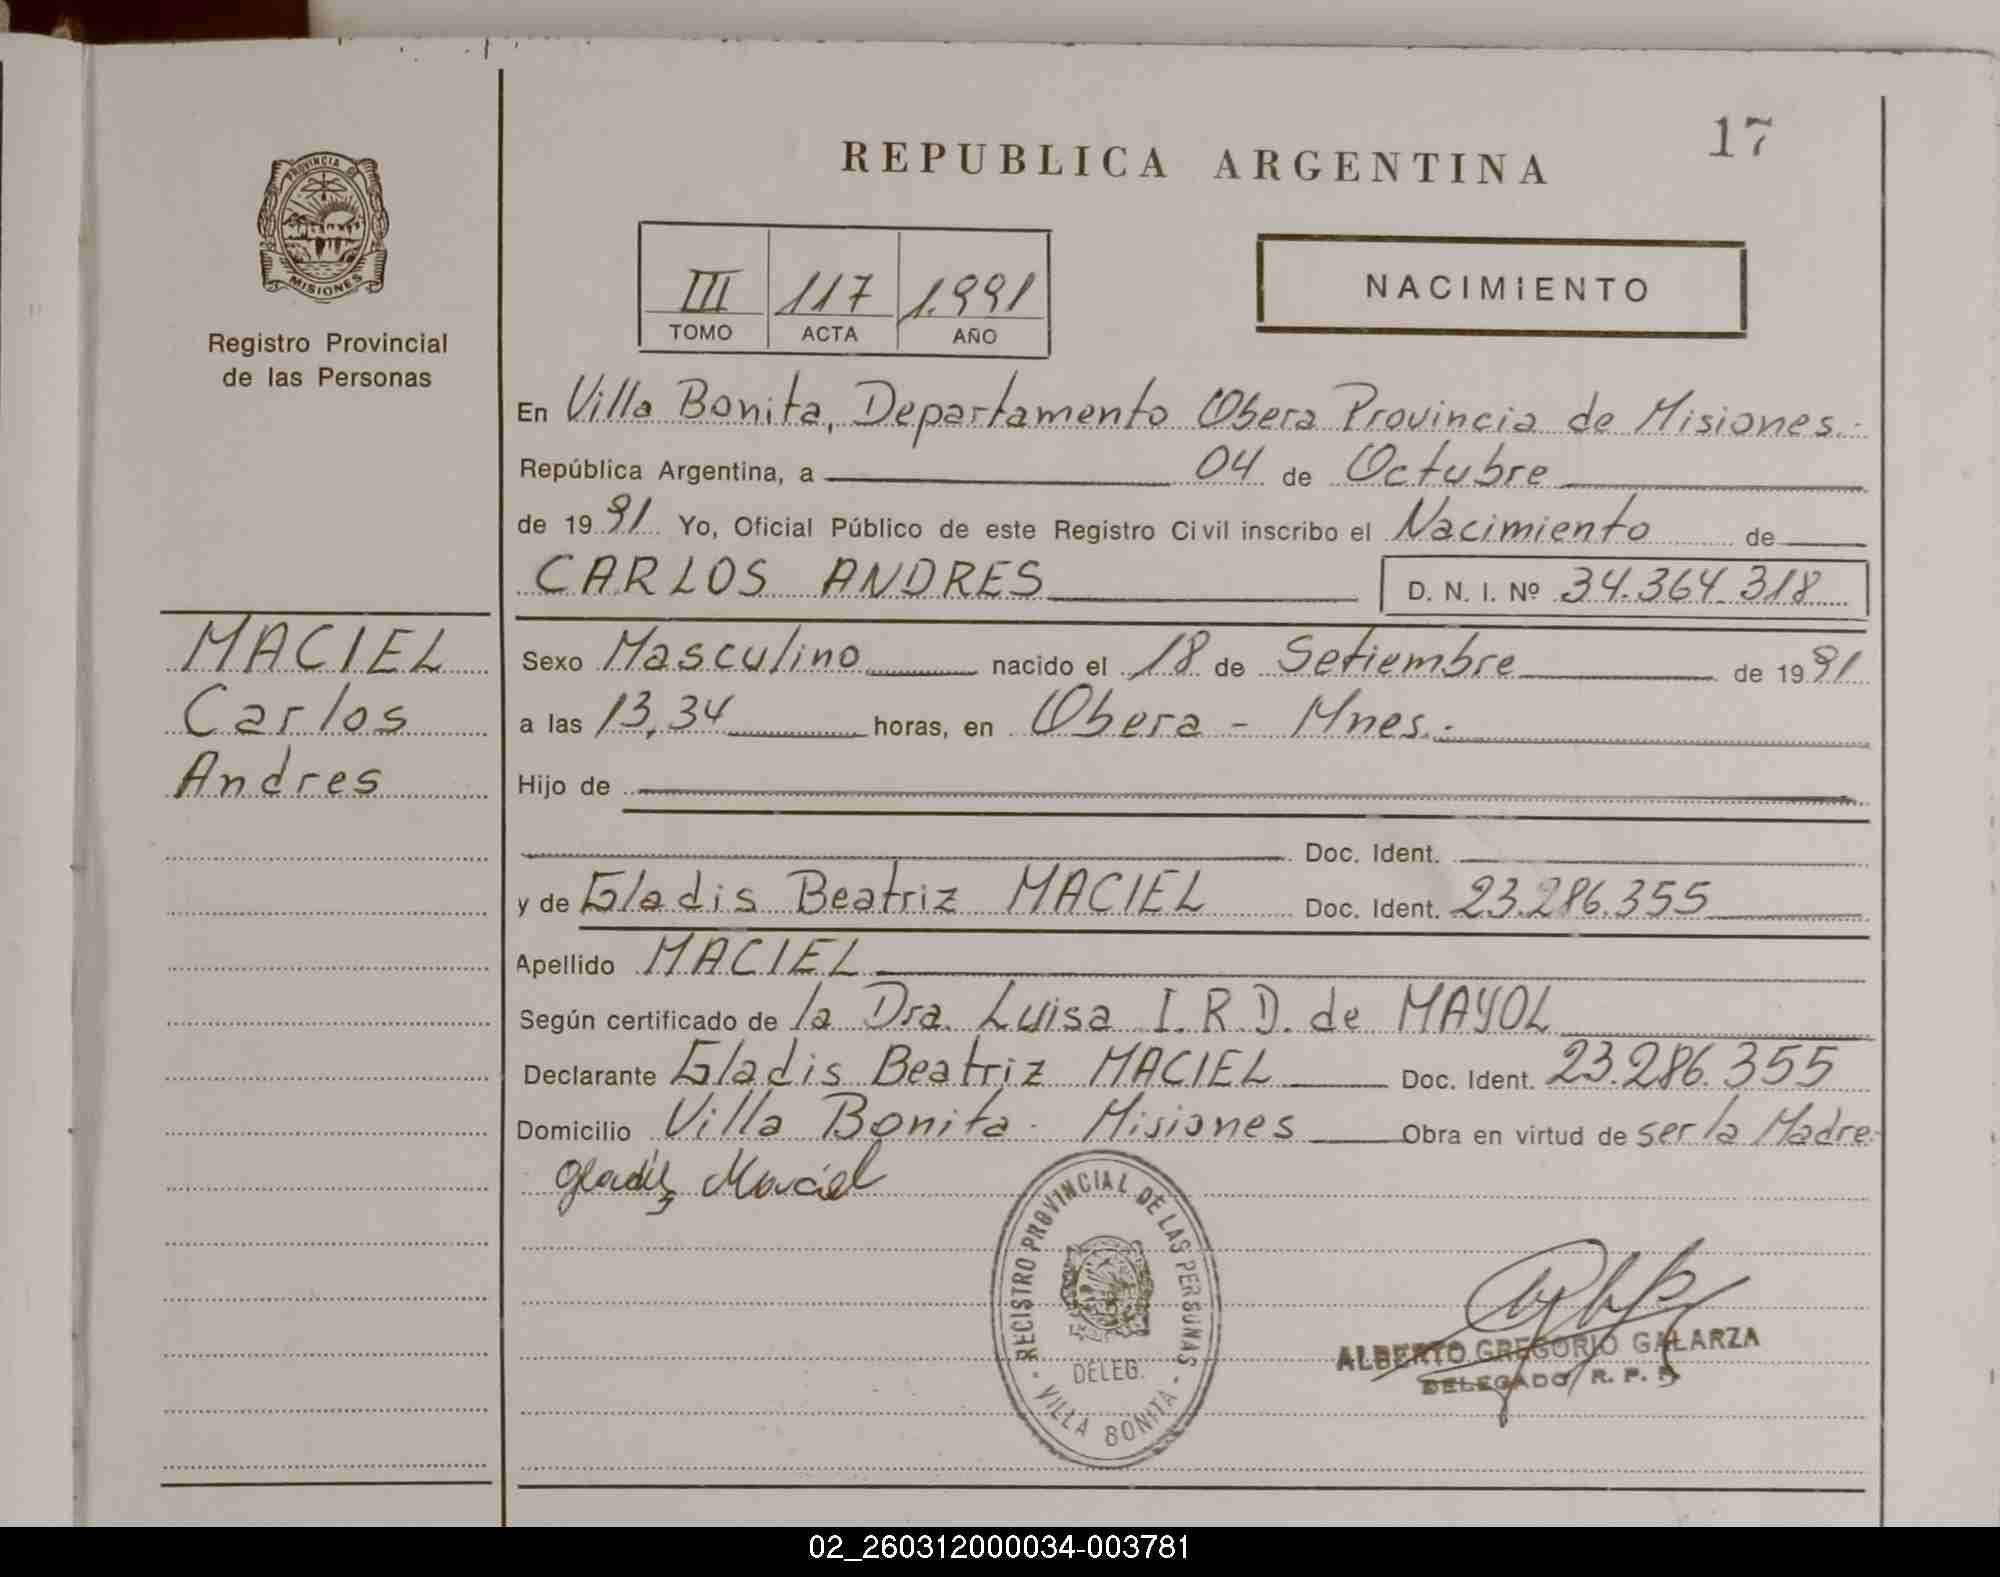 17
REPUBLICA ARGENTINA
PROVINCIA DE
MISIONES
Registro Provincial
de las Personas
III 117 1.991
TOMO ACTA AÑO
NACIMIENTO
En Villa Bonita, Departamento Obera Provincia de Misiones.-
República Argentina, a 04 de Octubre
de 1991 Yo, Oficial Público de este Registro Civil inscribo el Nacimiento de
CARLOS ANDRES D. N. I. Nº 34.364.318
MACIEL
Carlos
Andres
Sexo Masculino nacido el 18 de Setiembre de 1991
a las 13,34 horas, en Obera - Mnes.-
Hijo de
Doc. Ident.
y de Gladis Beatriz MACIEL Doc. Ident. 23.286.355
Apellido MACIEL
Según certificado de la Dra. Luisa I.R.D. de MAYOL
Declarante Gladis Beatriz MACIEL Doc. Ident. 23.286.355
Domicilio Villa Bonita - Misiones Obra en virtud de ser la Madre-
Gladis Maciel
REGISTRO PROVINCIAL DE LAS PERSONAS
DELEG.
- VILLA BONITA -
ALBERTO GREGORIO GALARZA
DELEGADO R. P. P.
02_260312000034-003781